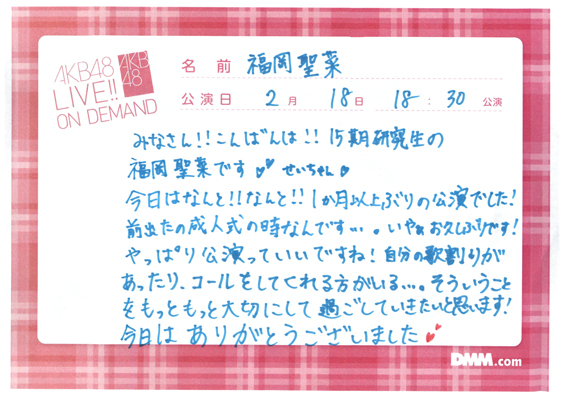 AKB48
LIVE!!
ON DEMAND
AKB
48
名 前 福岡聖菜
公演日 2月 18日 18:30 公演
みなさん!!こんばんは!!15期研究生の
福岡聖菜です♡♡せいちゃん♡
今日はなんと!!なんと!!1か月以上ぶりの公演でした!
前出たの成人式の時なんです…。いやぁお久しぶりです!
やっぱり公演っていいですね!自分の歌割りが
あったり、コールをしてくれる方がいる…。そういうこと
をもっともっと大切にして過ごしていきたいと思います!
今日はありがとうございました
DMM.com